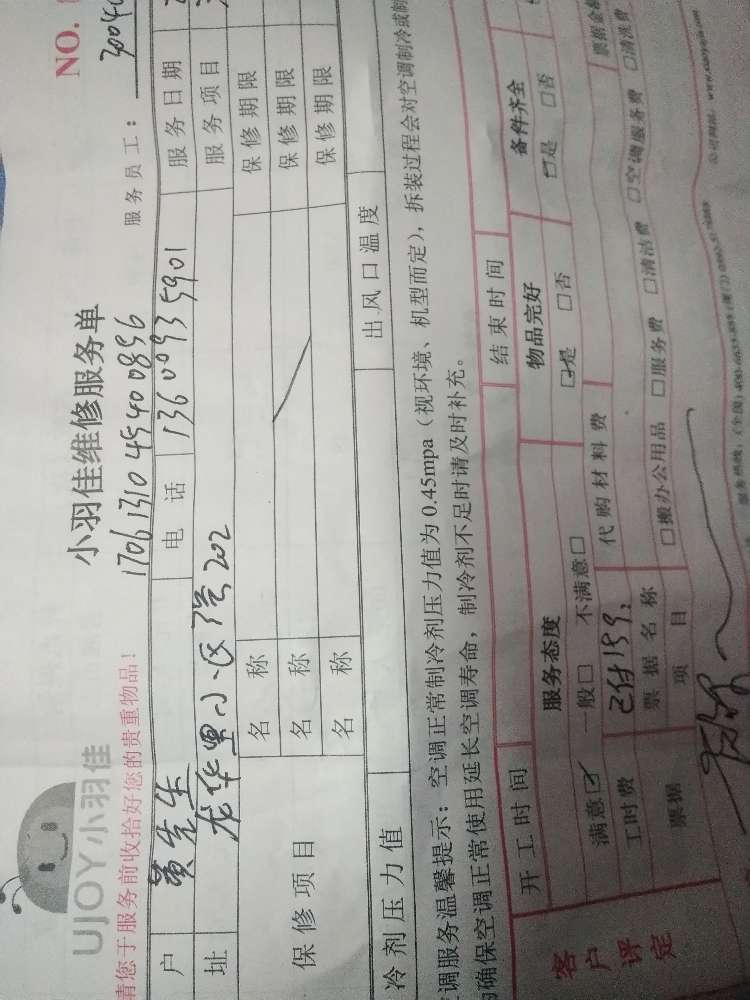 UJOY小羽佳
小羽佳维修服务单
NO.
请您于服务前收拾好您的贵重物品！
1706131045400896
服务员工：
3004
户 黄先生 电话 13600935901 服务日期
址 龙华里小区 202 服务项目
保修项目
名称 保修期限
名称 保修期限
名称 保修期限
冷剂压力值 出风口温度
调服务温馨提示：空调正常制冷剂压力值为0.45mpa（视环境、机型而定），拆装过程会对空调制冷或制
确保空调正常使用延长空调寿命，制冷剂不足时请及时补充。
开工时间 结束时间
客户评定
服务态度 物品完好 备件齐全
满意☑ 一般□ 不满意□ ☑是 □否 ☑是 □否
工时费 已付159 代购材料费 票据金额
票据 票据名称
项目 □搬办公用品 □服务费 □清洁费 □空调服务费 □清洗费
服务热线：(全国)
公司网址：www.xiaoyujia.com